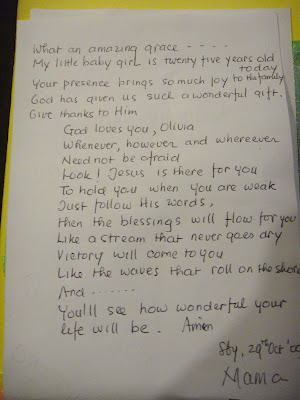 What an amazing grace - - - -
My little baby girl is twenty five years old
today
Your presence brings so much joy to this family
God has given us such a wonderful gift.
Give thanks to Him
God loves you, Olivia
Whenever, however and whereever
Need not be afraid
Look! Jesus is there for you
To hold you when you are weak
Just follow His words,
then the blessings will flow for you
Like a stream that never goes dry
Victory will come to you
Like the waves that roll on the shore
And .......
You'll see how wonderful your
life will be. Amen
29th Oct
Mama